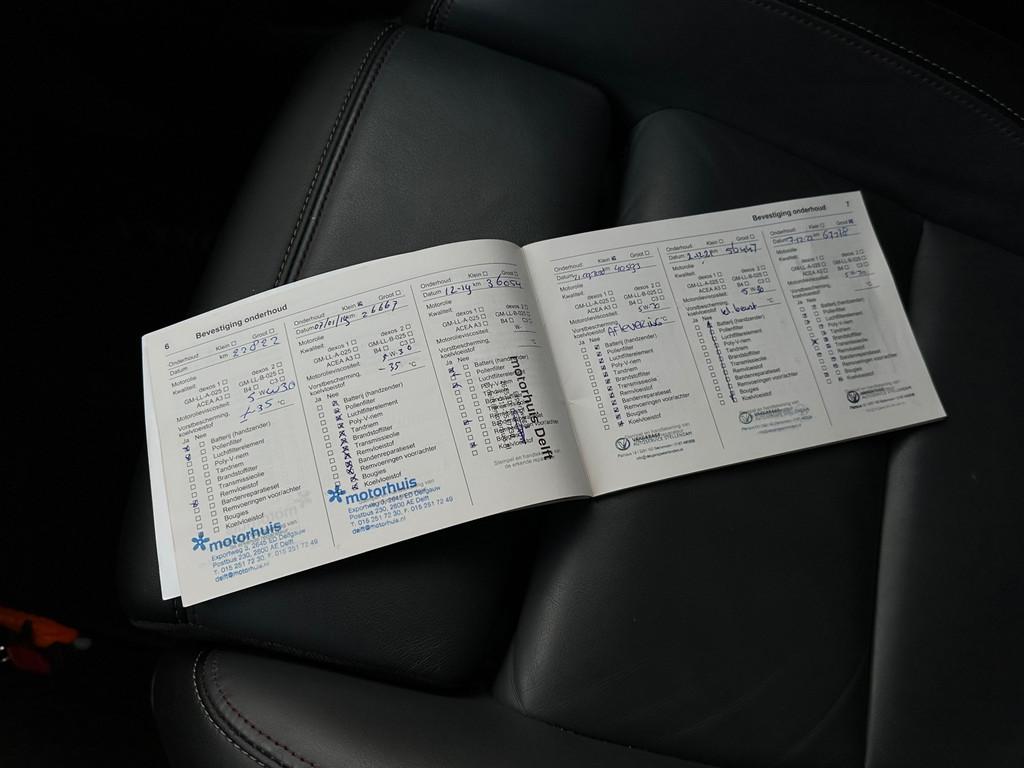 6
Bevestiging onderhoud
Onderhoud Klein ☐ Groot ☐
Datum km 22822
Motorolie
Kwaliteit. dexos 1 ☐ dexos 2 ☐
GM-LL-A-025 ☐ GM-LL-B-025 ☐
ACEA A3 ☐ B4 ☐ C3 ☐
Motorolieviscositeit. 5 W 30
Vorstbescherming,
koelvloeistof -35 °C
Ja Nee
Batterij (handzender)
Pollenfilter
Luchtfilterelement
Poly-V-riem
Tandriem
Brandstoffilter
Transmissieolie
Remvloeistof
Bandenreparatieset
Remvoeringen voor/achter
Bougies
Koelvloeistof
motorhuis
Exportweg 3, 2645 ED Delfgauw
Postbus 230, 2600 AE Delft
T. 015 251 72 30, F. 015 251 72 49
delft@motorhuis.nl
Onderhoud Klein ☒ Groot ☐
Datum 07/01/19 km 26667
Motorolie
Kwaliteit. dexos 1 ☐ dexos 2 ☐
GM-LL-A-025 ☐ GM-LL-B-025 ☐
ACEA A3 ☐ B4 ☐ C3 ☐
Motorolieviscositeit. 5 W 30
Vorstbescherming,
koelvloeistof -35 °C
Ja Nee
Batterij (handzender)
Pollenfilter
Luchtfilterelement
Poly-V-riem
Tandriem
Brandstoffilter
Transmissieolie
Remvloeistof
Bandenreparatieset
Remvoeringen voor/achter
Bougies
Koelvloeistof
motorhuis
Exportweg 3, 2645 ED Delfgauw
Postbus 230, 2600 AE Delft
T. 015 251 72 30, F. 015 251 72 49
delft@motorhuis.nl
Onderhoud Klein ☐ Groot ☐
Datum 12-19 km 36054
Motorolie
Kwaliteit. dexos 1 ☐ dexos 2 ☐
GM-LL-A-025 ☐ GM-LL-B-025 ☐
ACEA A3 ☐ B4 ☐ C3 ☐
Motorolieviscositeit. W-
Vorstbescherming,
koelvloeistof
Ja Nee
Batterij (handzender)
Pollenfilter
Luchtfilterelement
Poly-V-riem
motorhuis Delft
Stempel en handtekening van
de erkende
Bevestiging onderhoud
7
Onderhoud Klein ☒ Groot ☐
Datum km 40593
Motorolie
Kwaliteit. dexos 1 ☐ dexos 2 ☐
GM-LL-A-025 ☐ GM-LL-B-025 ☐
ACEA A3 ☐ B4 ☐ C3 ☐
Motorolieviscositeit. 5 W 30
Vorstbescherming,
koelvloeistof Aflevering °C
Ja Nee
Batterij (handzender)
Pollenfilter
Luchtfilterelement
Poly-V-riem
Tandriem
Brandstoffilter
Transmissieolie
Remvloeistof
Bandenreparatieset
Remvoeringen voor/achter
Bougies
Koelvloeistof
AUTOSERVICE STELLENDAM
Onderhoud Klein ☒ Groot ☐
Datum km
Motorolie
Kwaliteit. dexos 1 ☐ dexos 2 ☐
GM-LL-A-025 ☐ GM-LL-B-025 ☐
ACEA A3 ☐ B4 ☐ C3 ☐
Motorolieviscositeit. 5 W 30
Vorstbescherming,
koelvloeistof °C
Ja Nee
Batterij (handzender)
Pollenfilter
Luchtfilterelement
Poly-V-riem
Tandriem
Brandstoffilter
Transmissieolie
Remvloeistof
Bandenreparatieset
Remvoeringen voor/achter
Bougies
Koelvloeistof
Onderhoud Klein ☐ Groot ☒
Datum km
Motorolie
Kwaliteit. dexos 1 ☐ dexos 2 ☐
GM-LL-A-025 ☐ GM-LL-B-025 ☐
ACEA A3 ☐ B4 ☐ C3 ☐
Motorolieviscositeit.
Vorstbescherming,
koelvloeistof °C
Ja Nee
Batterij (handzender)
Pollenfilter
Luchtfilterelement
Poly-V-riem
Tandriem
Brandstoffilter
Transmissieolie
Remvloeistof
Bandenreparatieset
Remvoeringen voor/achter
Bougies
Koelvloeistof